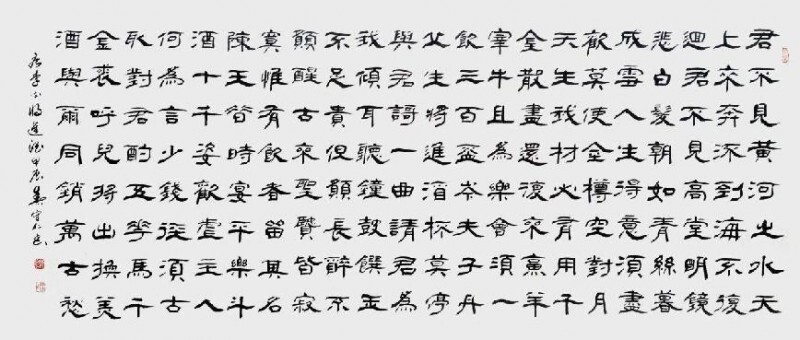 君不見黃河之水天
上來奔流到海不復
迴君不見高堂明鏡
悲白髮朝如青絲暮
成雪人生得意須盡
歡莫使金樽空對月
天生我材必有用千
金散盡還復來烹羊
宰牛且為樂會須一
飲三百盃岑夫子丹
丘生將進酒杯莫停
與君謌一曲請君為
我傾耳聽鐘鼓饌玉
不足貴但願長醉不
願醒古來聖賢皆寂
寞惟有飲者留其名
陳王昔時宴平樂斗
酒十千恣歡虐主人
何為言少錢徑須古
取對君酌五花馬千
金裘呼兒將出換美
酒與爾同銷萬古愁
唐李白將進酒甲辰